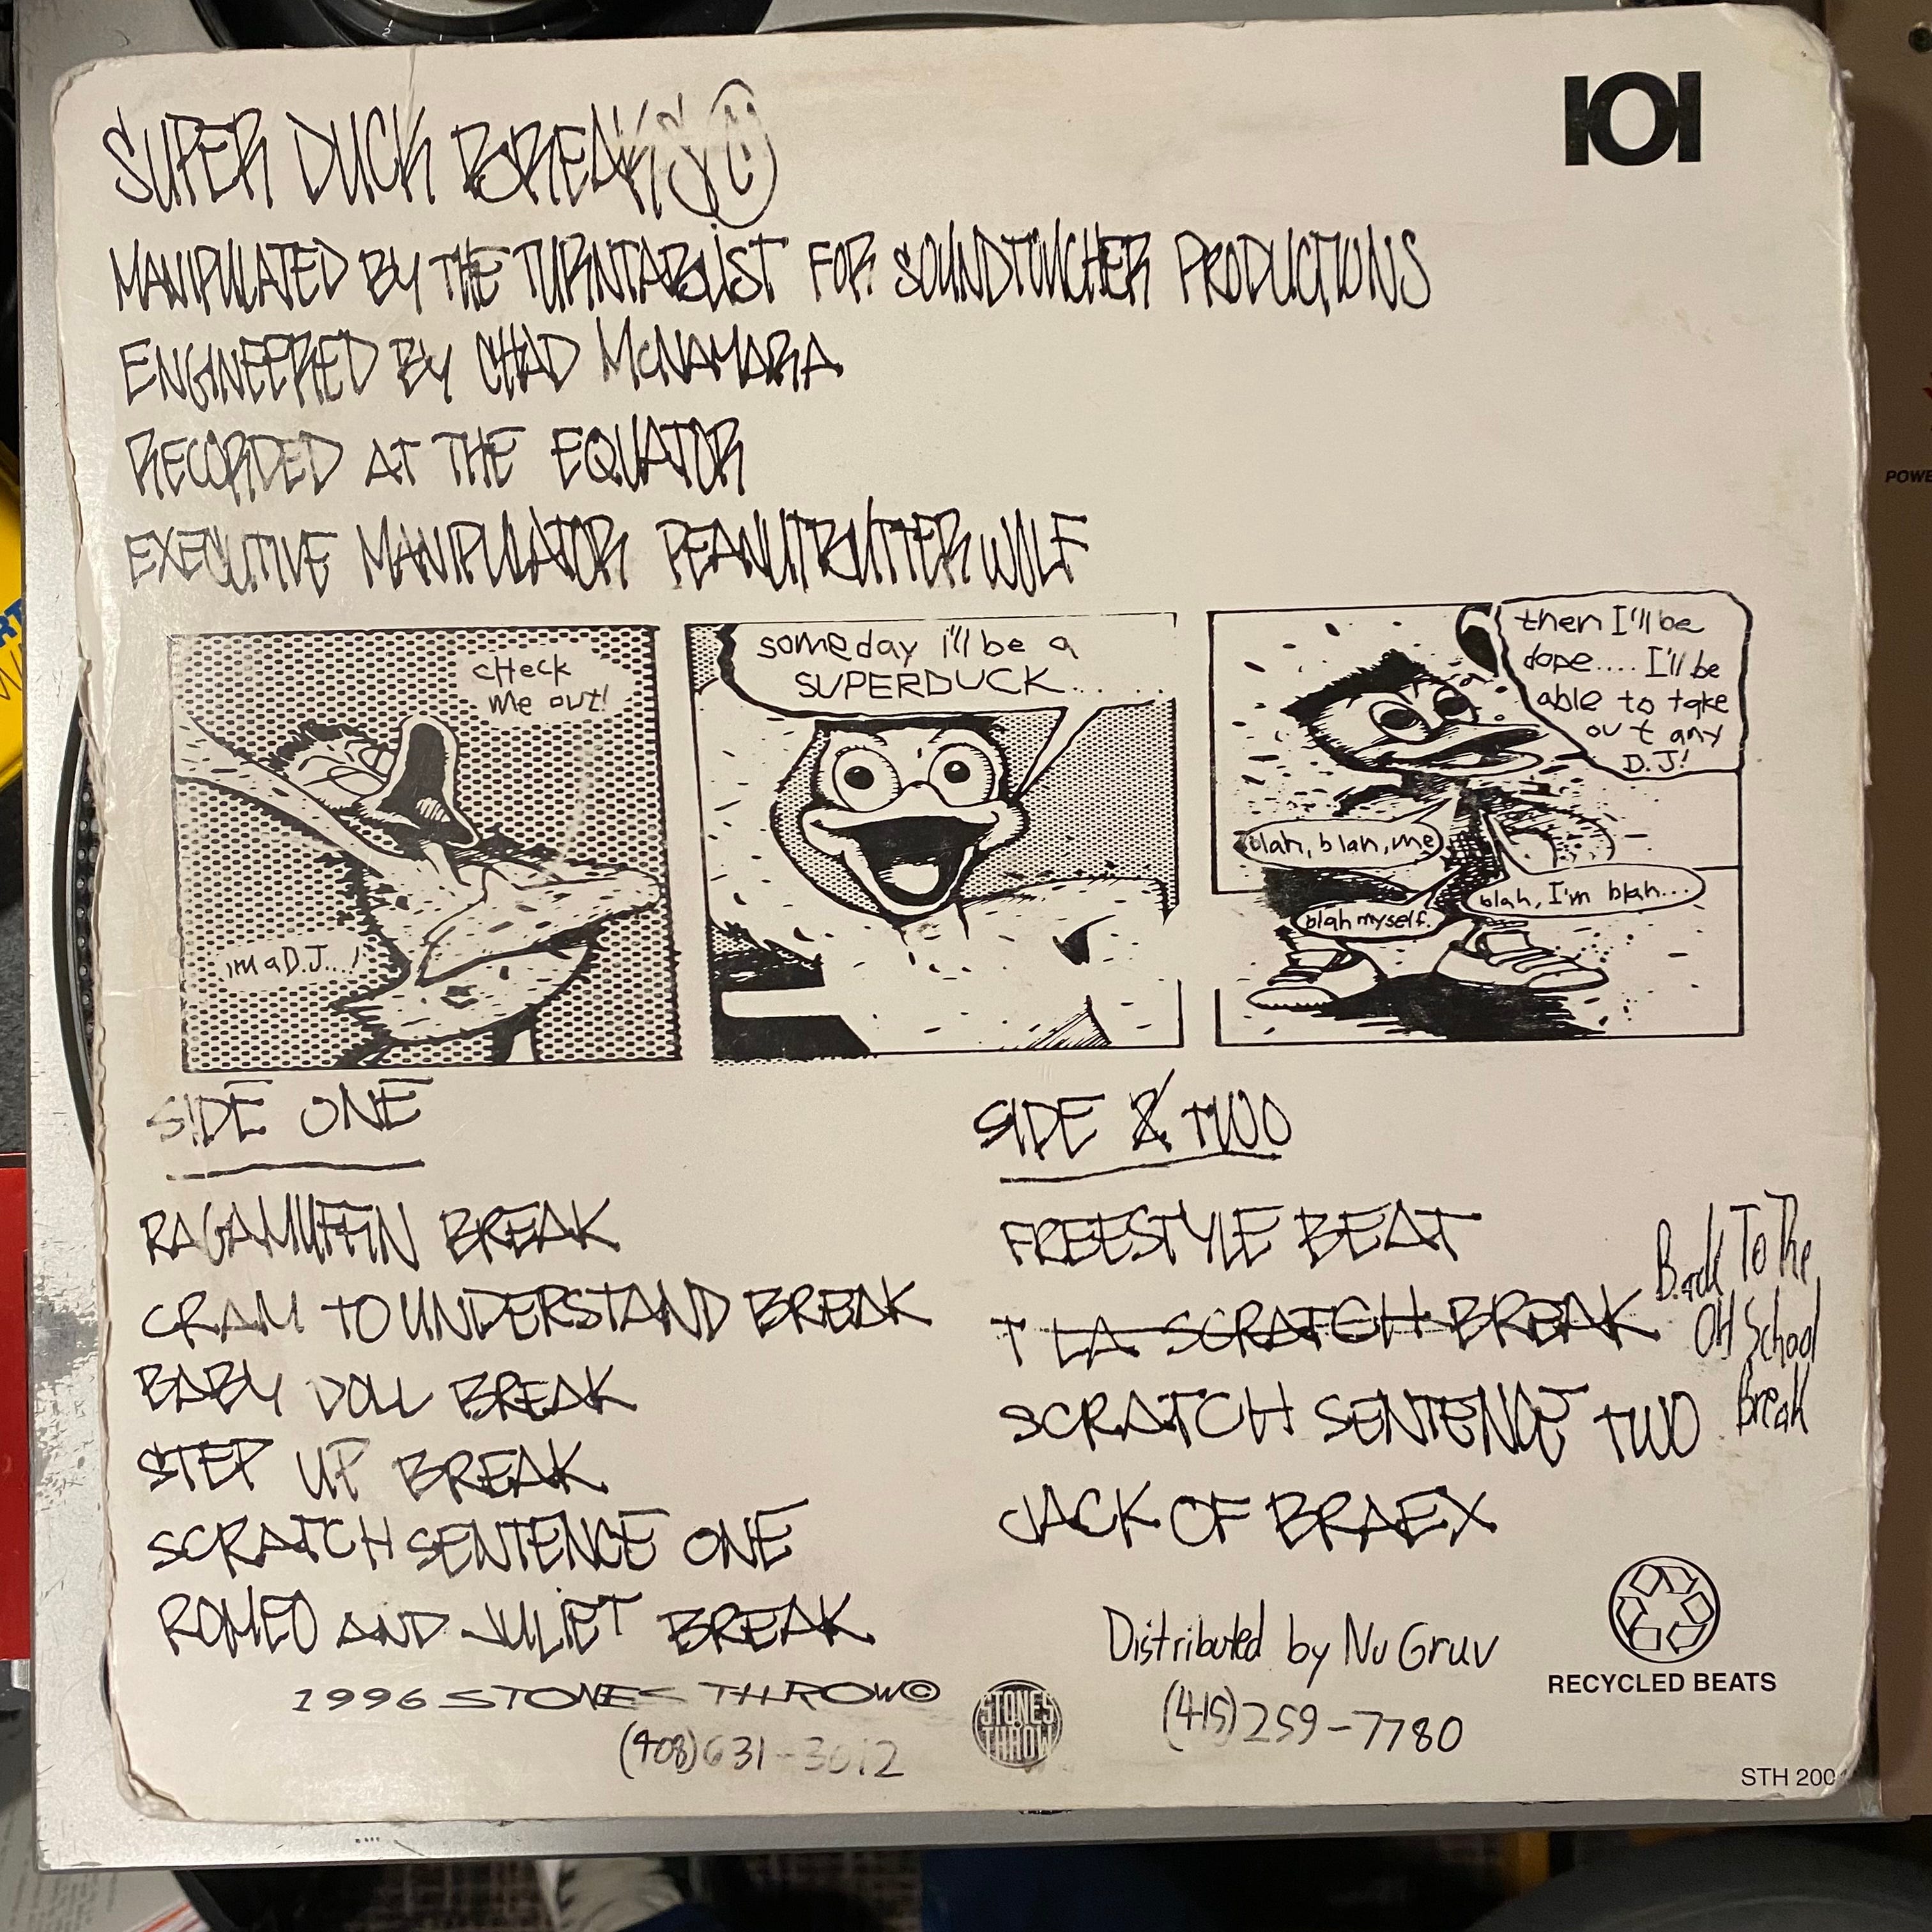 SUPER DUCK BREAKS
101
MANIPULATED BY THE TURNTABLIST FOR SOUNDTOUCHER PRODUCTIONS
ENGINEERED BY CHAD McNAMARA
RECORDED AT THE EQUATOR
EXECUTIVE MANIPULATOR PEANUTBUTTER WOLF
CHECK
me out!
i'm a D.J....!
someday i'll be a
SUPERDUCK.....
then I'll be
dope.... I'll be
able to take
out any
D.J!
blah, blah, me
blah myself.
blah, I'm blah...
SIDE ONE
RAGAMUFFIN BREAK
CRAM TO UNDERSTAND BREAK
BABY DOLL BREAK
STEP UP BREAK
SCRATCH SENTENCE ONE
ROMEO AND JULIET BREAK
1996 STONES THROW©
(408)631-3012
STONES
THROW
SIDE 2 TWO
FREESTYLE BEAT
T LA SCRATCH BREAK
Back To The
Old School
Break
SCRATCH SENTENCE TWO
JACK OF BRAEX
Distributed by Nu Gruv
(415)259-7780
RECYCLED BEATS
STH 200
POWE